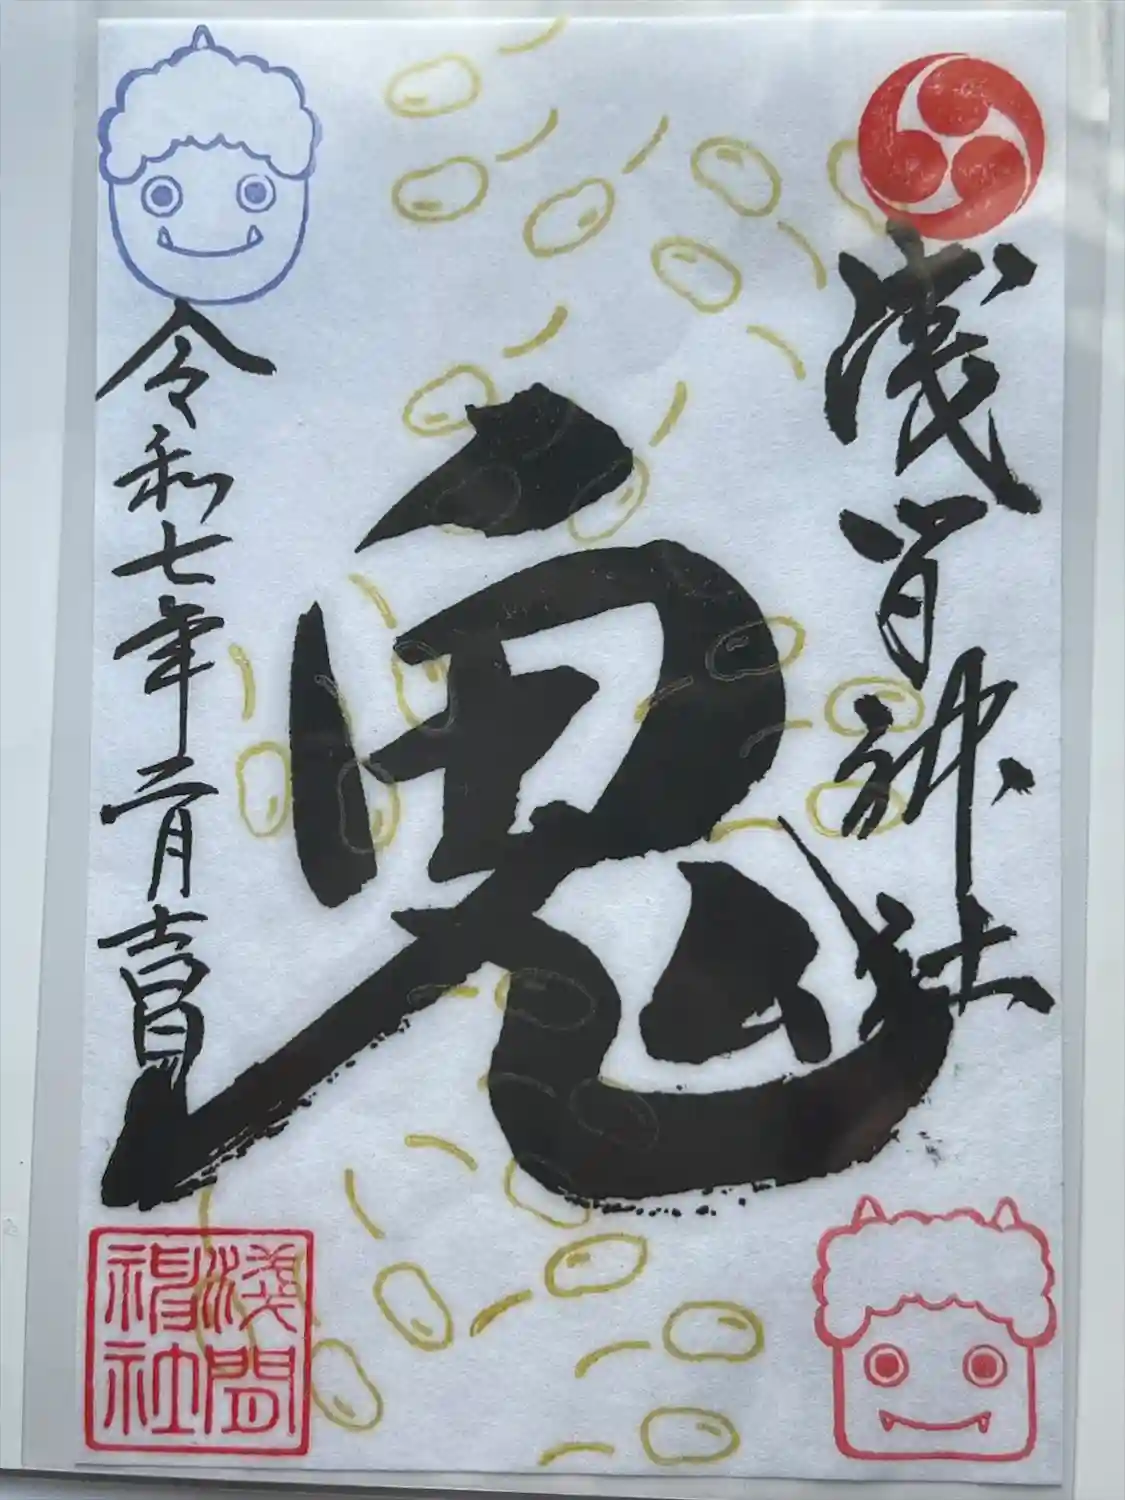 浅間神社
鬼
令和七年二月吉日
浅間
神社